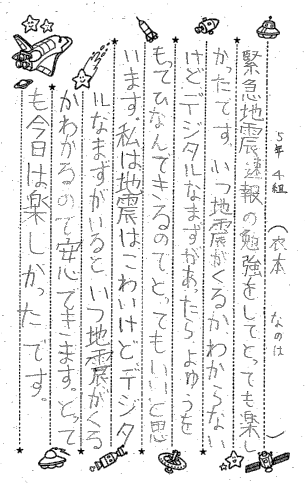 5年4組（衣本 なのは）
緊急地震速報の勉強をしてとっても楽し
かったです。いつ地震がくるかわからない
けどデジタルなまずがあったら、よゆうを
もってひなんできるのでとってもいいと思
います。私は地震はこわいけどデジタ
ルなまずがいると、いつ地震がくる
かわかるので安心できます。とって
も今日は楽しかったです。